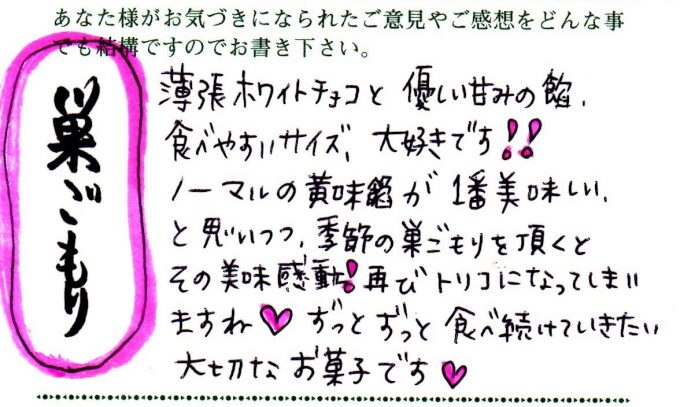 あなた様がお気づきになられたご意見やご感想をどんな事
でも結構ですのでお書き下さい。
巣ごもり
薄張ホワイトチョコと 優しい甘みの餡、
食べやすいサイズ、大好きです!!
ノーマルの黄味餡が 1番美味しい、
と思いつつ、季節の巣ごもりを頂くと
その美味感動!再びトリコになってしまい
ますね♥ ずっとずっと食べ続けていきたい
大切なお菓子です♥